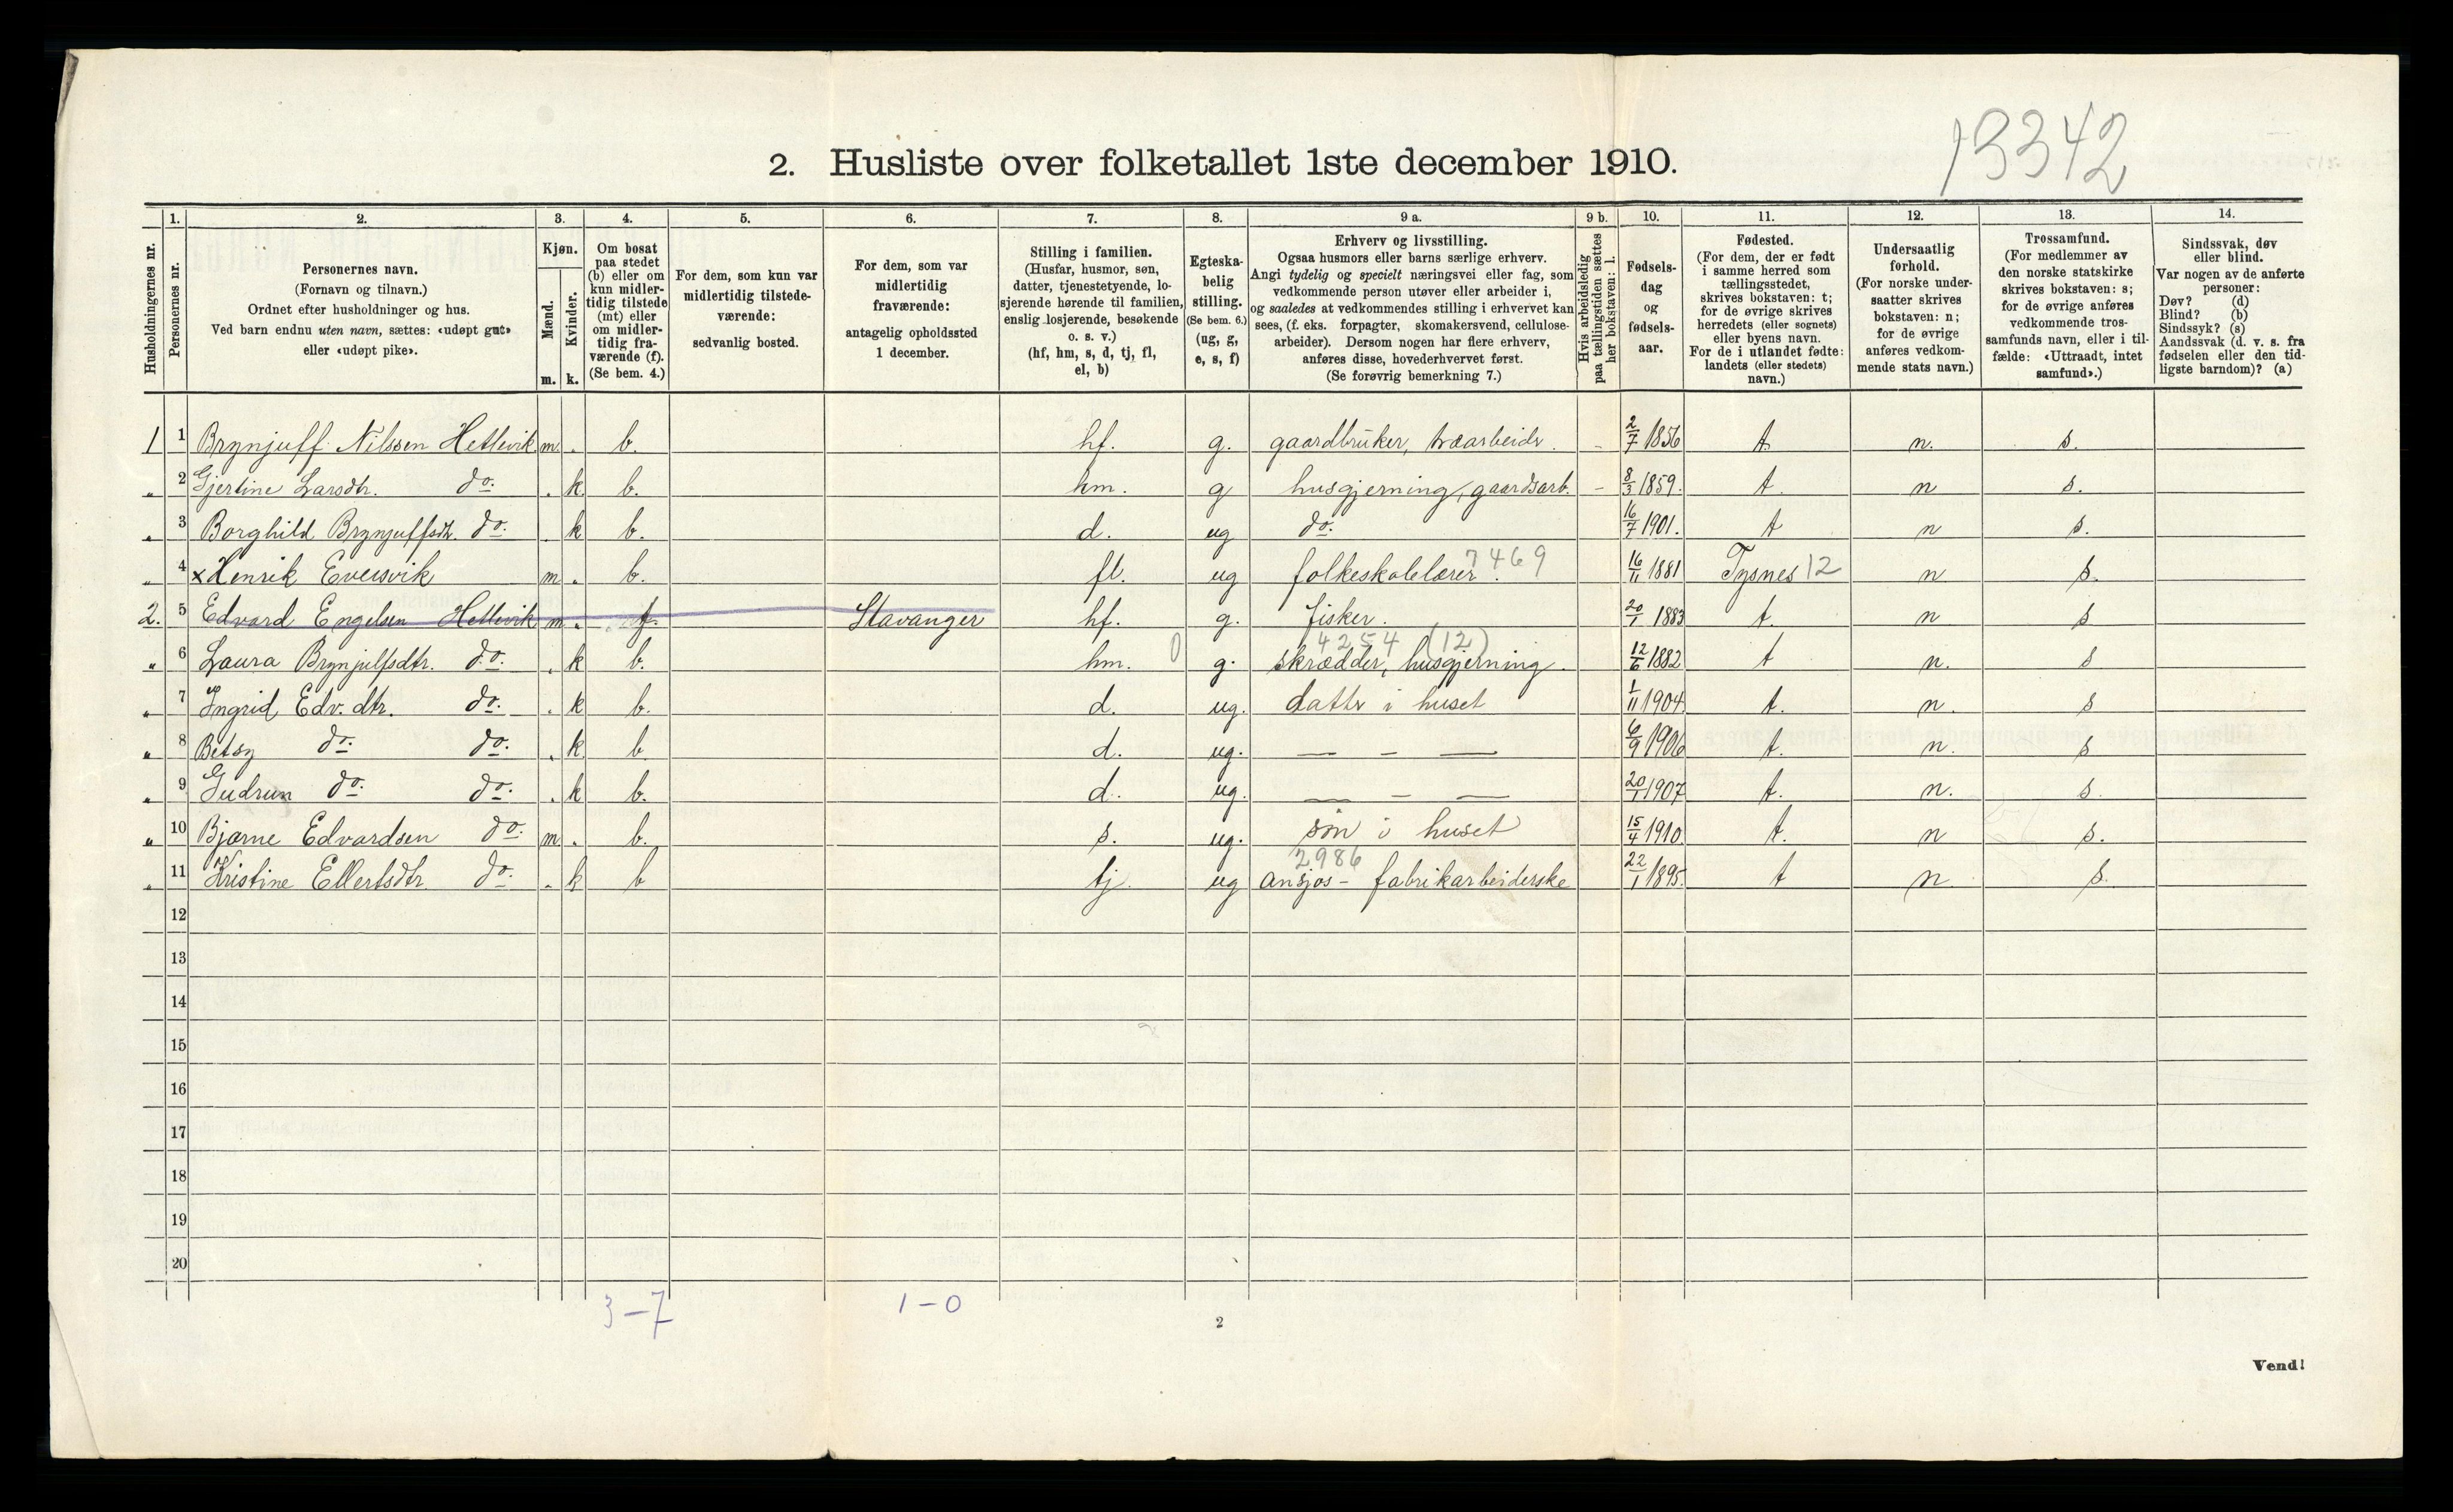 13342
2. Husliste over folketallet 1ste december 1910.
1. 2. 3. 4. 5. 6. 7. 8. 9 a. 9 b. 10. 11. 12. 13. 14.
Husholdningernes nr.
Personernes nr.
Personernes navn.
(Fornavn og tilnavn.)
Ordnet efter husholdninger og hus.
Ved barn endnu uten navn, sættes: «udøpt gut»
eller «udøpt pike».
Kjøn.
Mænd.
Kvinder.
m. k.
Om bosat
paa stedet
(b) eller om
kun midler-
tidig tilstede
(mt) eller
om midler-
tidig fra-
værende (f).
(Se bem. 4.)
For dem, som kun var
midlertidig tilstede-
værende:
sedvanlig bosted.
For dem, som var
midlertidig
fraværende:
antagelig opholdssted
1 december.
Stilling i familien.
(Husfar, husmor, søn,
datter, tjenestetyende, lo-
sjerende hørende til familien,
enslig losjerende, besøkende
o. s. v.)
(hf, hm, s, d, tj, fl,
el, b)
Egteska-
belig
stilling.
(Se bem. 6.)
(ug, g,
e, s, f)
Erhverv og livsstilling.
Ogsaa husmors eller barns særlige erhverv.
Angi tydelig og specielt næringsvei eller fag, som
vedkommende person utøver eller arbeider i,
og saaledes at vedkommendes stilling i erhvervet kan
sees, (f. eks. forpagter, skomakersvend, cellulose-
arbeider). Dersom nogen har flere erhverv,
anføres disse, hovederhvervet først.
(Se forøvrig bemerkning 7.)
Hvis arbeidsledig
paa tællingstiden sættes
her bokstaven: l.
Fødsels-
dag
og
fødsels-
aar.
Fødested.
(For dem, der er født
i samme herred som
tællingsstedet,
skrives bokstaven: t;
for de øvrige skrives
herredets (eller sognets)
eller byens navn.
For de i utlandet fødte:
landets (eller stedets)
navn.)
Undersaatlig
forhold.
(For norske under-
saatter skrives
bokstaven: n;
for de øvrige
anføres vedkom-
mende stats navn.)
Trossamfund.
(For medlemmer av
den norske statskirke
skrives bokstaven: s;
for de øvrige anføres
vedkommende tros-
samfunds navn, eller i til-
fælde: «Uttraadt, intet
samfund».)
Sindssvak, døv
eller blind.
Var nogen av de anførte
personer:
Døv? (d)
Blind? (b)
Sindssyk? (s)
Aandssvak (d. v. s. fra
fødselen eller den tid-
ligste barndom)? (a)
1 1 Brynjuff Nilssen Hetlevik m. . b. hf. g. gaardbruker, træarbeider. - 2/7 1856 t. n. s.
" 2 Gjertine Larsdtr. do. . k. b. hm. g husgjerning, gaardsarb. - 8/3 1859. t. n s.
" 3 Borghild Brynjuffsdt. do. . k b. d. ug do. 16/7 1901. t n s.
7469
" 4 x Henrik Eversvik m . b. fl. ug folkeskolelærer. 16/11 1881 Tysnes 12 n s.
2. 5 Edvard Engelsen Hetlevik m . f. Stavanger hf. g. fisker. 20/1 1883 t. n s
4254 (12)
" 6 Laura Brynjulfsdtr. do. . k b. hm. 0 g. skrædder, husgjerning. 12/6 1882 t n. s
" 7 Ingrid Edv. dtr. do. . k b. d. ug. datter i huset 1/11 1904. t. n. s
" 8 Betsy do. do. . k. b. d. ug. — - — 6/9 1906 t. n. s
" 9 Gudrun do. do. . k b. d. ug. — - — 20/1 1907 t. n. s.
" 10 Bjarne Edvardsen do. m . b. s. ug. søn i huset 15/4 1910. t. n s.
2986
" 11 Kristine Ellertsdtr do. . k b tj. ug ansjos- fabrikarbeiderske 22/1 1895. t n. s.
12
13
14
15
16
17
18
19
20
3-7 1-0
2
Vend!